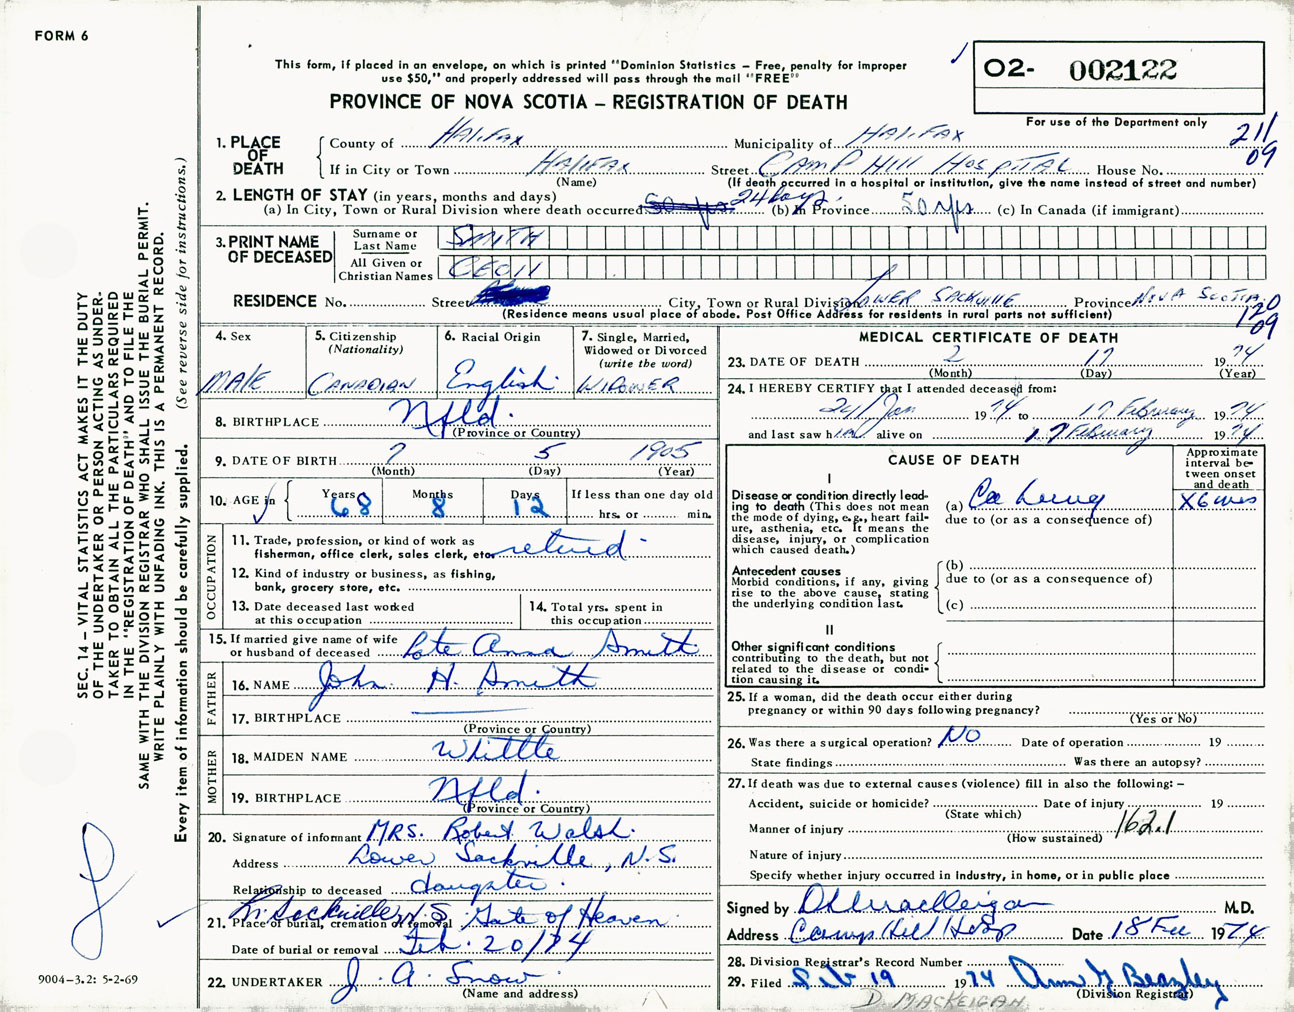 FORM 6
This form, if placed in an envelope, on which is printed "Dominion Statistics – Free, penalty for improper
use $50," and properly addressed will pass through the mail "FREE"
PROVINCE OF NOVA SCOTIA – REGISTRATION OF DEATH
02- 002122
For use of the Department only
211
09
1. PLACE OF DEATH
County of Halifax Municipality of Halifax
If in City or Town Halifax Street Camp Hill Hospital House No.
(Name) (If death occurred in a hospital or institution, give the name instead of street and number)
2. LENGTH OF STAY (in years, months and days)
(a) In City, Town or Rural Division where death occurred 50 yrs 24 Days. (b) In Province 50 yrs (c) In Canada (if immigrant)
3. PRINT NAME OF DECEASED
Surname or Last Name SMITH
All Given or Christian Names CECIL
RESIDENCE No. Street City, Town or Rural Division LOWER SACKVILLE Province NOVA SCOTIA
(Residence means usual place of abode. Post Office Address for residents in rural parts not sufficient)
120
09
4. Sex MALE
5. Citizenship (Nationality) CANADIAN
6. Racial Origin English
7. Single, Married, Widowed or Divorced (write the word) WIDOWER
8. BIRTHPLACE Nfld.
(Province or Country)
9. DATE OF BIRTH 7 5 1905
(Month) (Day) (Year)
10. AGE in Years 68 Months 8 Days 12 If less than one day old
hrs. or min.
OCCUPATION
11. Trade, profession, or kind of work as
fisherman, office clerk, sales clerk, etc. retired
12. Kind of industry or business, as fishing,
bank, grocery store, etc.
13. Date deceased last worked
at this occupation
14. Total yrs. spent in
this occupation
15. If married give name of wife
or husband of deceased Late Anna Smith
FATHER
16. NAME John H. Smith
17. BIRTHPLACE
(Province or Country)
MOTHER
18. MAIDEN NAME Whittle
19. BIRTHPLACE Nfld.
(Province or Country)
20. Signature of informant MRS. Robert Walsh.
Address Lower Sackville, N.S.
Relationship to deceased daughter.
21. Place of burial, cremation or removal Lr. Sackville N.S. Gate of Heaven
Date of burial or removal Feb. 20/74
22. UNDERTAKER J. A. Snow
(Name and address)
MEDICAL CERTIFICATE OF DEATH
23. DATE OF DEATH 2 17 1974
(Month) (Day) (Year)
24. I HEREBY CERTIFY that I attended deceased from:
24/Jan 1974 to 17 February 1974
and last saw him alive on 17 February 1974
CAUSE OF DEATH
Approximate interval between onset and death
I
Disease or condition directly lead-
ing to death (This does not mean
the mode of dying, e.g., heart fail-
ure, asthenia, etc. It means the
disease, injury, or complication
which caused death.)
(a) Ca Lung
due to (or as a consequence of)
Antecedent causes
Morbid conditions, if any, giving
rise to the above cause, stating
the underlying condition last.
(b)
due to (or as a consequence of)
(c)
II
Other significant conditions
contributing to the death, but not
related to the disease or condi-
tion causing it.
25. If a woman, did the death occur either during
pregnancy or within 90 days following pregnancy?
(Yes or No)
26. Was there a surgical operation? NO Date of operation 19
State findings Was there an autopsy?
27. If death was due to external causes (violence) fill in also the following: –
Accident, suicide or homicide? Date of injury 19
(State which)
Manner of injury 162.1
(How sustained)
Nature of injury
Specify whether injury occurred in Industry, in home, or in public place
Signed by D L MacKeigan M.D.
Address Camp Hill Hosp Date 18 Feb 1974
28. Division Registrar's Record Number
29. Filed Feb 19 1974 Ann G Beazley
(Division Registrar)
D. MACKEIGAN
SEC. 14 – VITAL STATISTICS ACT MAKES IT THE DUTY
OF THE UNDERTAKER OR PERSON ACTING AS UNDER-
TAKER TO OBTAIN ALL THE PARTICULARS REQUIRED
IN THE "REGISTRATION OF DEATH" AND TO FILE THE
SAME WITH THE DIVISION REGISTRAR WHO SHALL ISSUE THE BURIAL PERMIT.
WRITE PLAINLY WITH UNFADING INK. THIS IS A PERMANENT RECORD.
Every item of information should be carefully supplied. (See reverse side for instructions.)
9004–3.2: 5-2-69